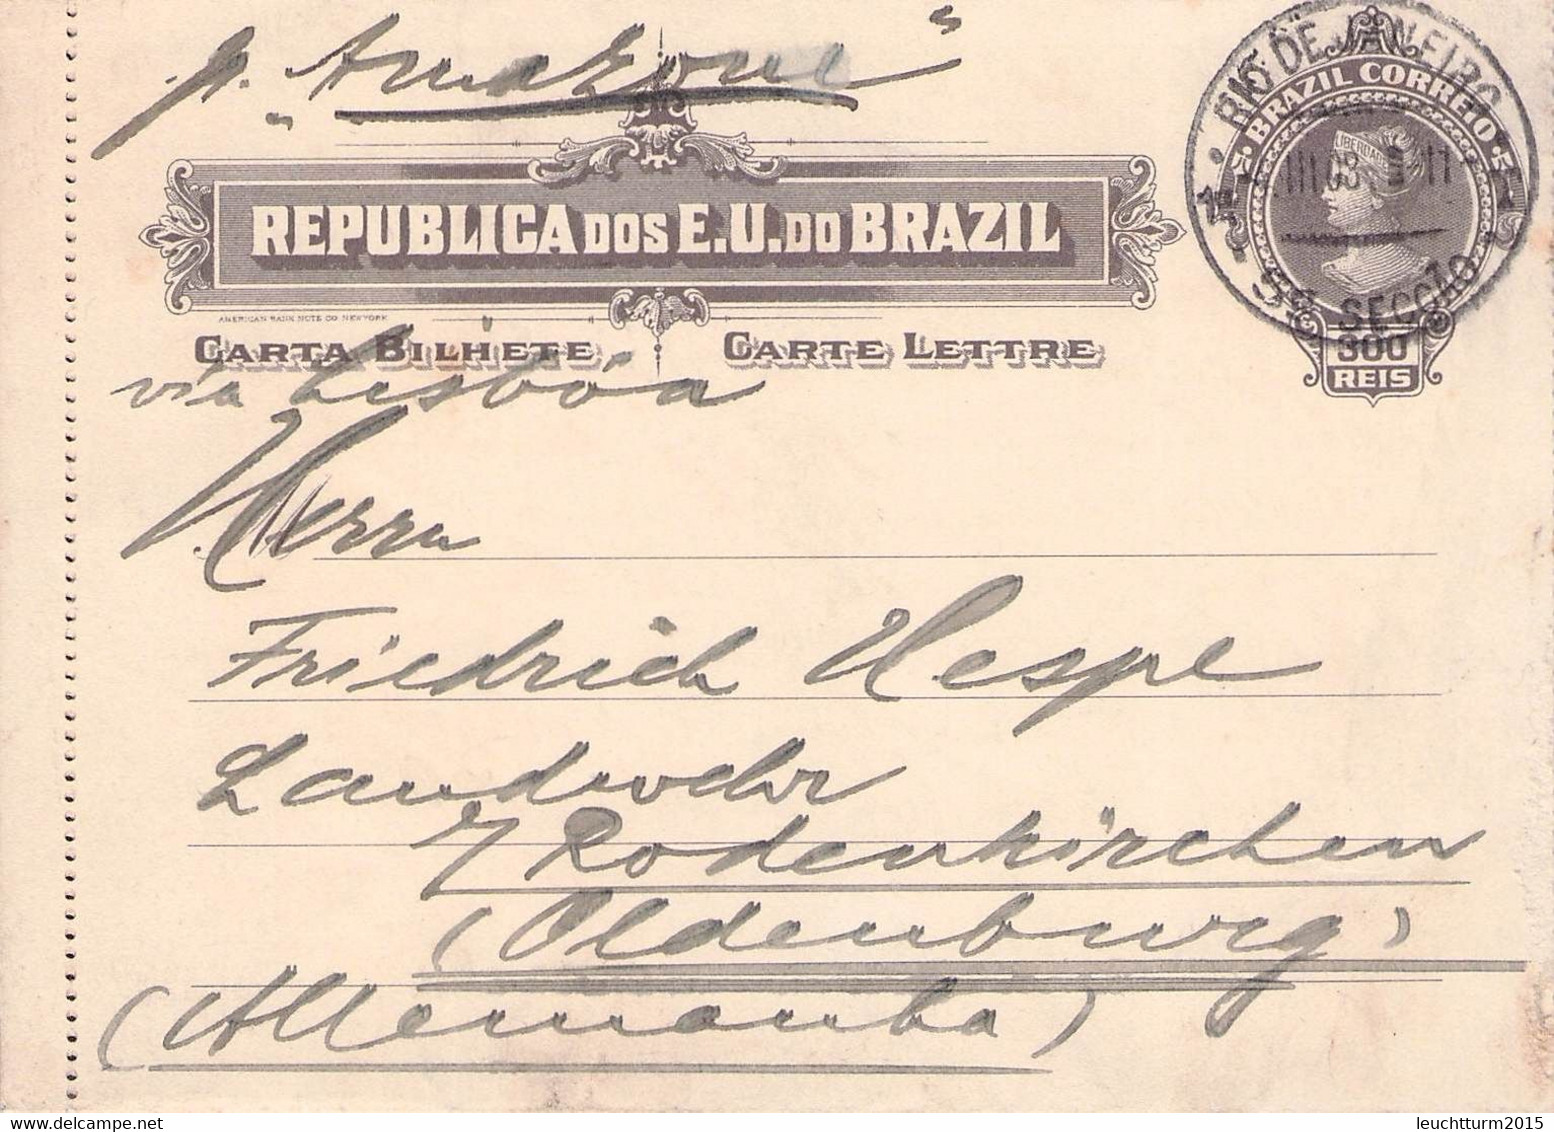 p. "Amazone"
RIO DE JANEIRO
BRAZIL CORREIO
LIBERDADE
III 08
5ª SECÇÃO
300
REIS
REPUBLICA DOS E.U. DO BRAZIL
AMERICAN BANK NOTE CO NEW YORK
CARTA BILHETE CARTE LETTRE
via Lisbôa
Herrn
Friedrich Hespe
Landwehr
Rodenkirchen
(Oldenburg)
(Allemanha)
leuchtturm2015